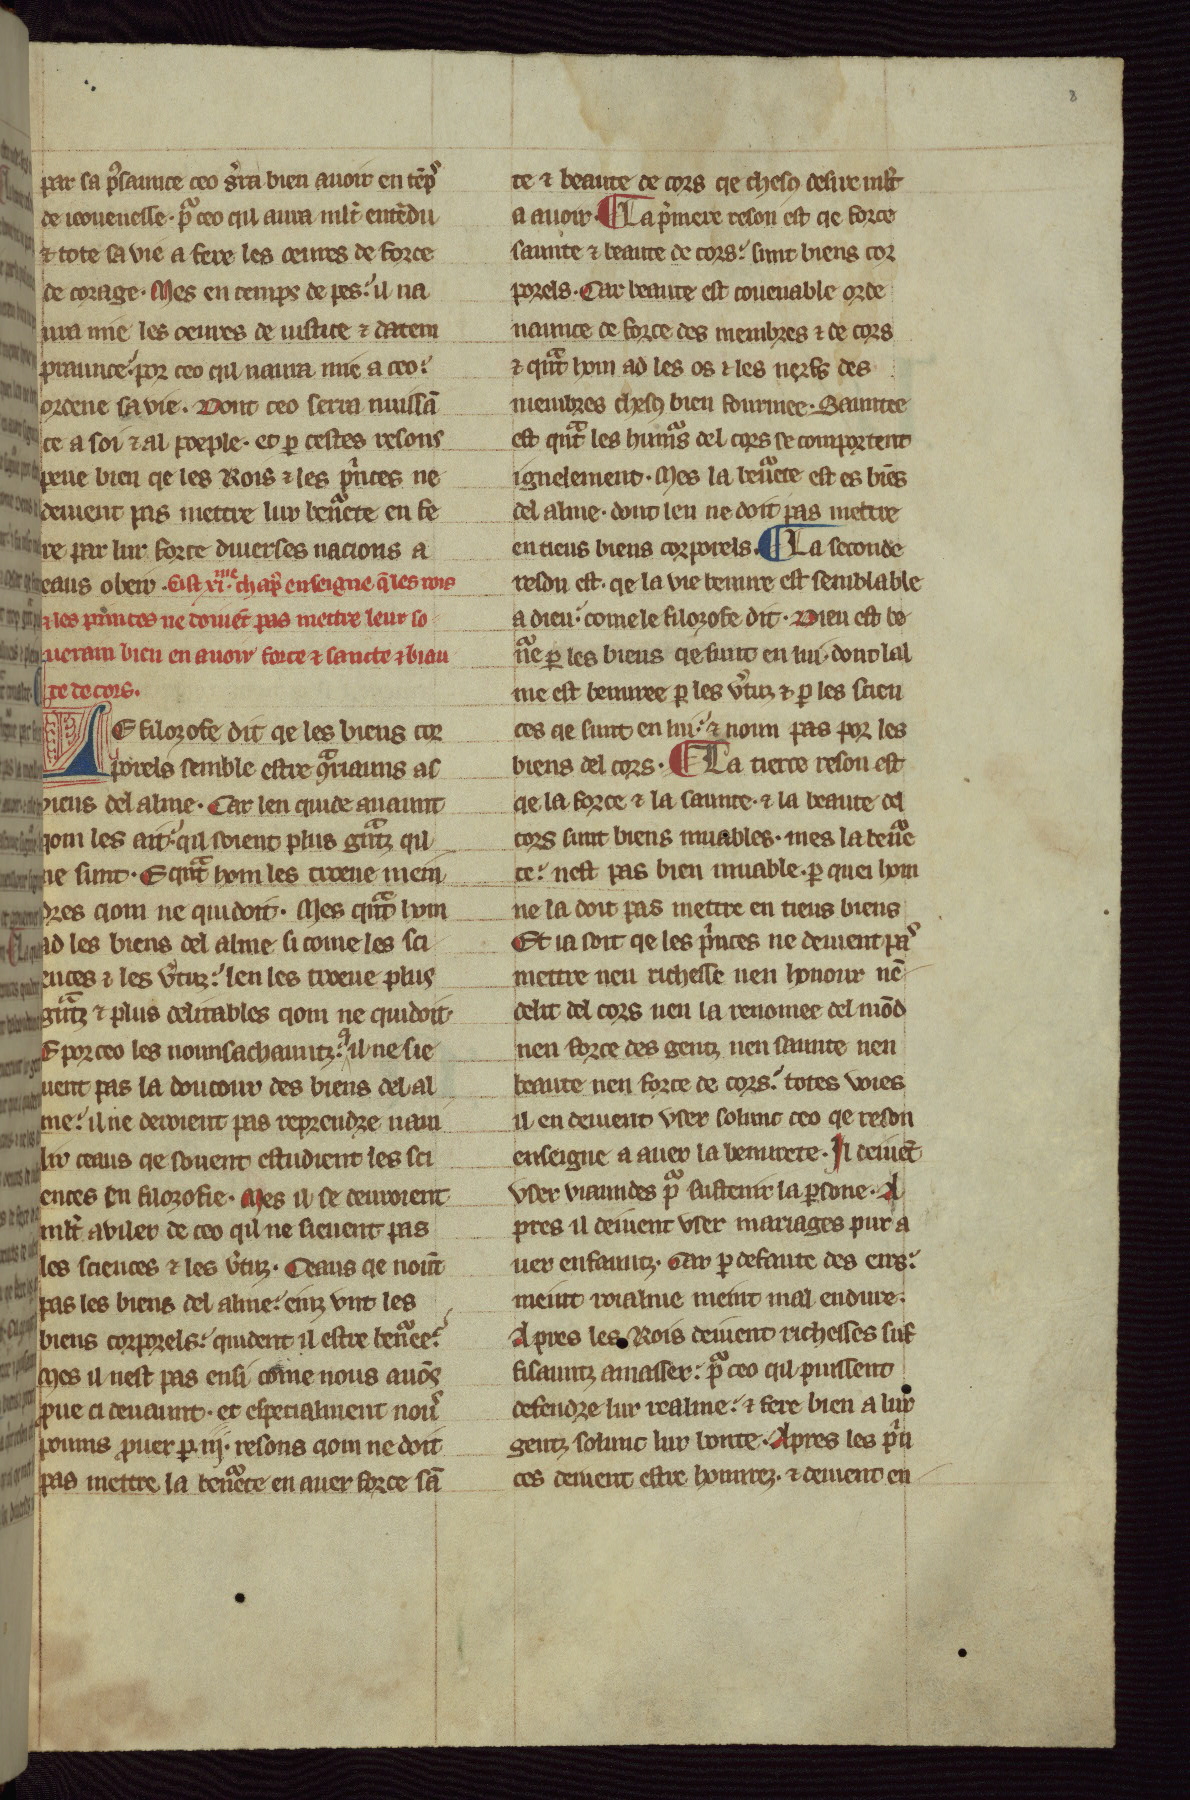 8
par sa p̾saunce ceo s̾ra bien auoir en te̅p̾
de iouenesse · pᵃ ceo qil aura ml̅t ente̅du
⁊ tote sa vie a fere les oeures de force
de corage · Mes en temps de pes: il na
ura mie les oeures de iustice ⁊ datem
praunce: por ceo qil naura mie a ceo:
ordene sa vie · Dont ceo serra nuissa̅
ce a soi ⁊ al poeple · et ꝑ cestes resons
peue bien qe les Rois ⁊ les p̾nces ne
deiuent pas mettre lur ben̾ᵃete en fe
re par lur force diuerses nacions a
eaus obeir · Cist xi·ᵐᵉ chap̾ enseigne q̅ les rois
⁊ les princes ne doiue̅t pas mettre leur so
uerain bien en auoir force ⁊ sancte ⁊ biau
te de cors.
LE filozofe dit qe les biens cor
porels semble estre ꝯtᵃriauns as
biens del alme · Car len quide auaunt
qom les ait: qil soient plus gᵃntz qil
ne sunt · E qᵃnt hom les troeue mein
dres qom ne quidoit · Mes qᵃnt hom
ad les biens del alme si come les sci
ences ⁊ les v̾tuz: len les troeue plus
gᵃntz ⁊ plus delitables qom ne quidoit·
E por ceo les nounsachauntz: q̾ il ne sie
uent pas la doucour des biens del al
me: il ne deroient pas reprendre n au
lir ceaus qe souent estudient les sci
ences en filozofie · Mes il se deuroient
ml̅t auiler de ceo qil ne sieuent pas
les sciences ⁊ les v̾tuz · Ceaus qe nou̅t
pas les biens del alme: einz vnt les
biens corporels: quident il estre ben̾ᵃee:
Mes il nest pas ensi come nous auo̅s
ꝓue ci deuaunt · et especialment nou̾
poums ꝓuer ꝑ ·iij· resons qom ne doit
pas mettre la ben̾ᵃete en auer force sa̅
te ⁊ beaute de cors qe chesq̾ desire ml̅t
a auoir · La p̾mere reson est qe force
saunte ⁊ beaute de cors: sunt biens cor
porels · Car beaute est couenable orde
naunce de force des membres ⁊ de cors
⁊ qᵃnt hom ad les os ⁊ les nerfs des
membres chesq̾ bien fourmee · Sauntee
est qᵃnt les humᵃs del cors se comportent
ignelement · Mes la ben̾ᵃete est es bie̅s
del alme · dont len ne doit pas mettre
en tieus biens corporels · La seconde
reson est · qe la vie benure est semblable
a dieu: come le filozofe dit · Dieu est be
n̾ᵃe ꝑ les biens qe sunt en lui · dont lal
me est benuree ꝑ les v̾tuz ⁊ ꝑ les scien
ces qe sunt en lui: ⁊ noun pas por les
biens del cors · La tierce reson est
qe la force ⁊ la saunte · ⁊ la beaute del
cors sunt biens muables · mes la ben̾ᵃe
te: nest pas bien muable · ꝑ quei hom
ne la doit pas mettre en tieus biens
Et ia soit qe les p̾nces ne deiuent pa̾
mettre neu richesse nen honour ne̅
delit del cors nen la renomee del mo̅d
nen force des gentz nen saunte nen
beaute nen force de cors: totes voies
il en deiuent vser solunc ceo qe reson
enseigne a auer la benurete · Il deiue̅t
vser viaundes pᵃ sustenir la ꝑsone · A
pres il deiuent vser mariages pur a
uer enfauntz · Car ꝑ defaute des eirs:
meint roialme meint mal endure ·
Apres les Rois deiuent richesses suf
fisauntz amasser: pᵃ ceo qil puissent
defendre lur realme: ⁊ fere bien a lur
gentz solunc lur bonte · Apres les p̾n
ces deiuent estre honurez · ⁊ deiuent en